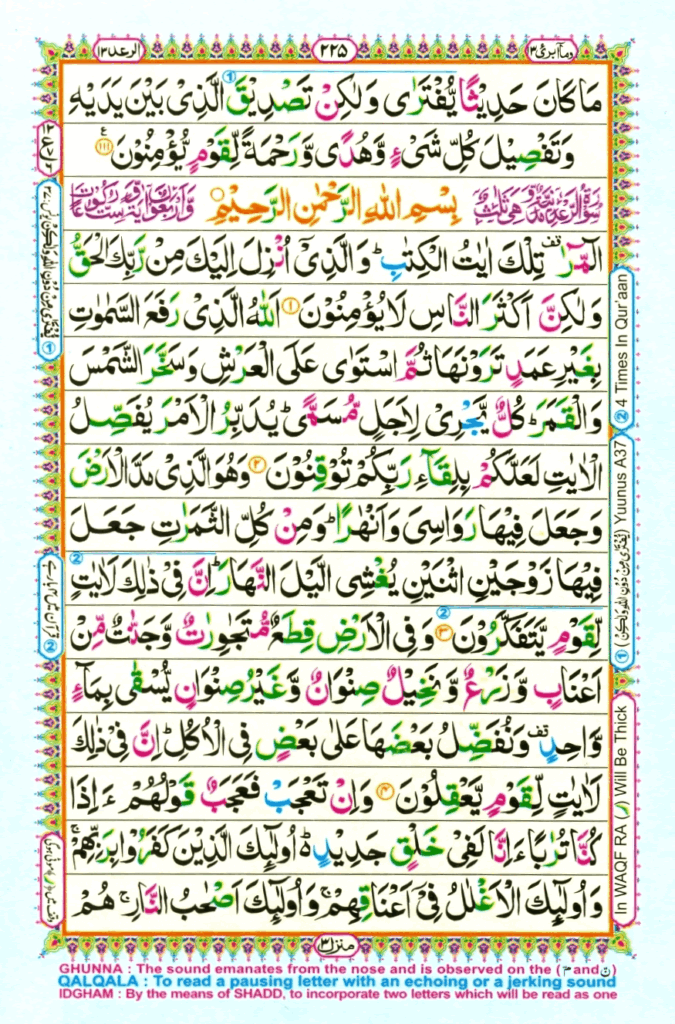 الرعد ١٣
٢٢٥
ومآ ابرئ ١٣
مَا كَانَ حَدِيْثًا يُّفْتَرٰى وَلٰكِنْ تَصْدِيْقَ الَّذِىْ بَيْنَ يَدَيْهِ
وَتَفْصِيْلَ كُلِّ شَىْءٍ وَّهُدًى وَّرَحْمَةً لِّقَوْمٍ يُّؤْمِنُوْنَ ۝١١١
بِسْمِ اللهِ الرَّحْمٰنِ الرَّحِيْمِ
الٓمّٓرٰ قف تِلْكَ اٰيٰتُ الْكِتٰبِ ؕ وَالَّذِىْۤ اُنْزِلَ اِلَيْكَ مِنْ رَّبِّكَ الْحَقُّ
وَلٰكِنَّ اَكْثَرَ النَّاسِ لَا يُؤْمِنُوْنَ ۝١ اَللهُ الَّذِىْ رَفَعَ السَّمٰوٰتِ
بِغَيْرِ عَمَدٍ تَرَوْنَهَا ثُمَّ اسْتَوٰى عَلَى الْعَرْشِ وَسَخَّرَ الشَّمْسَ
وَالْقَمَرَ ؕ كُلٌّ يَّجْرِىْ لِاَجَلٍ مُّسَمًّى ؕ يُدَبِّرُ الْاَمْرَ يُفَصِّلُ
الْاٰيٰتِ لَعَلَّكُمْ بِلِقَآءِ رَبِّكُمْ تُوْقِنُوْنَ ۝٢ وَهُوَ الَّذِىْ مَدَّ الْاَرْضَ
وَجَعَلَ فِيْهَا رَوَاسِىَ وَاَنْهٰرًا ؕ وَمِنْ كُلِّ الثَّمَرٰتِ جَعَلَ
فِيْهَا زَوْجَيْنِ اثْنَيْنِ يُغْشِى الَّيْلَ النَّهَارَ ؕ اِنَّ فِىْ ذٰلِكَ لَاٰيٰتٍ
لِّقَوْمٍ يَّتَفَكَّرُوْنَ ۝٣ وَفِى الْاَرْضِ قِطَعٌ مُّتَجٰوِرٰتٌ وَّجَنّٰتٌ مِّنْ
اَعْنَابٍ وَّزَرْعٌ وَّنَخِيْلٌ صِنْوَانٌ وَّغَيْرُ صِنْوَانٍ يُّسْقٰى بِمَآءٍ
وَّاحِدٍ قف وَنُفَضِّلُ بَعْضَهَا عَلٰى بَعْضٍ فِى الْاُكُلِ ؕ اِنَّ فِىْ ذٰلِكَ
لَاٰيٰتٍ لِّقَوْمٍ يَّعْقِلُوْنَ ۝٤ وَاِنْ تَعْجَبْ فَعَجَبٌ قَوْلُهُمْ ءَاِذَا
كُنَّا تُرٰبًا ءَاِنَّا لَفِىْ خَلْقٍ جَدِيْدٍ ؕ۬ اُولٰٓئِكَ الَّذِيْنَ كَفَرُوْا بِرَبِّهِمْ ۚ
وَاُولٰٓئِكَ الْاَغْلٰلُ فِىْۤ اَعْنَاقِهِمْ ۚ وَاُولٰٓئِكَ اَصْحٰبُ النَّارِ ۚ هُمْ
② 4 Times In Qur'aan
① (يُّفْتَرٰى مِنْ دُوْنِ اللهِ وَلٰكِنْ) Yuunus A37
In WAQF RA (ر) Will Be Thick
منزل ٣
GHUNNA : The sound emanates from the nose and is observed on the (م and ن)
QALQALA : To read a pausing letter with an echoing or a jerking sound
IDGHAM : By the means of SHADD, to incorporate two letters which will be read as one